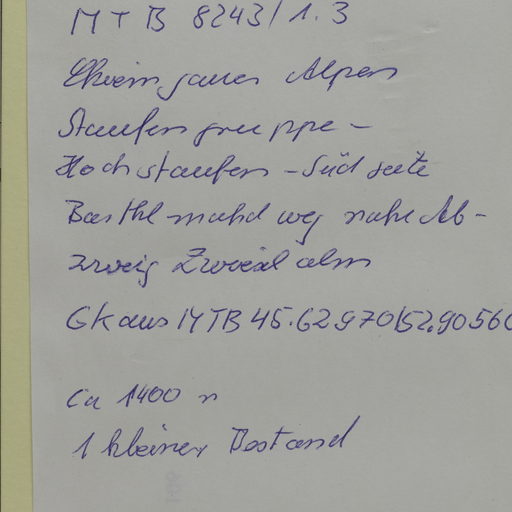 MTB 8243/1.3
Chiemgauer Alpen
Staufengruppe -
Hochstaufen - Südseite
Barthlmahdweg nahe Ab-
zweig Zwieselalm
GK aus MTB 45.62970/52.90560
ca 1400 m
1 kleiner Bestand